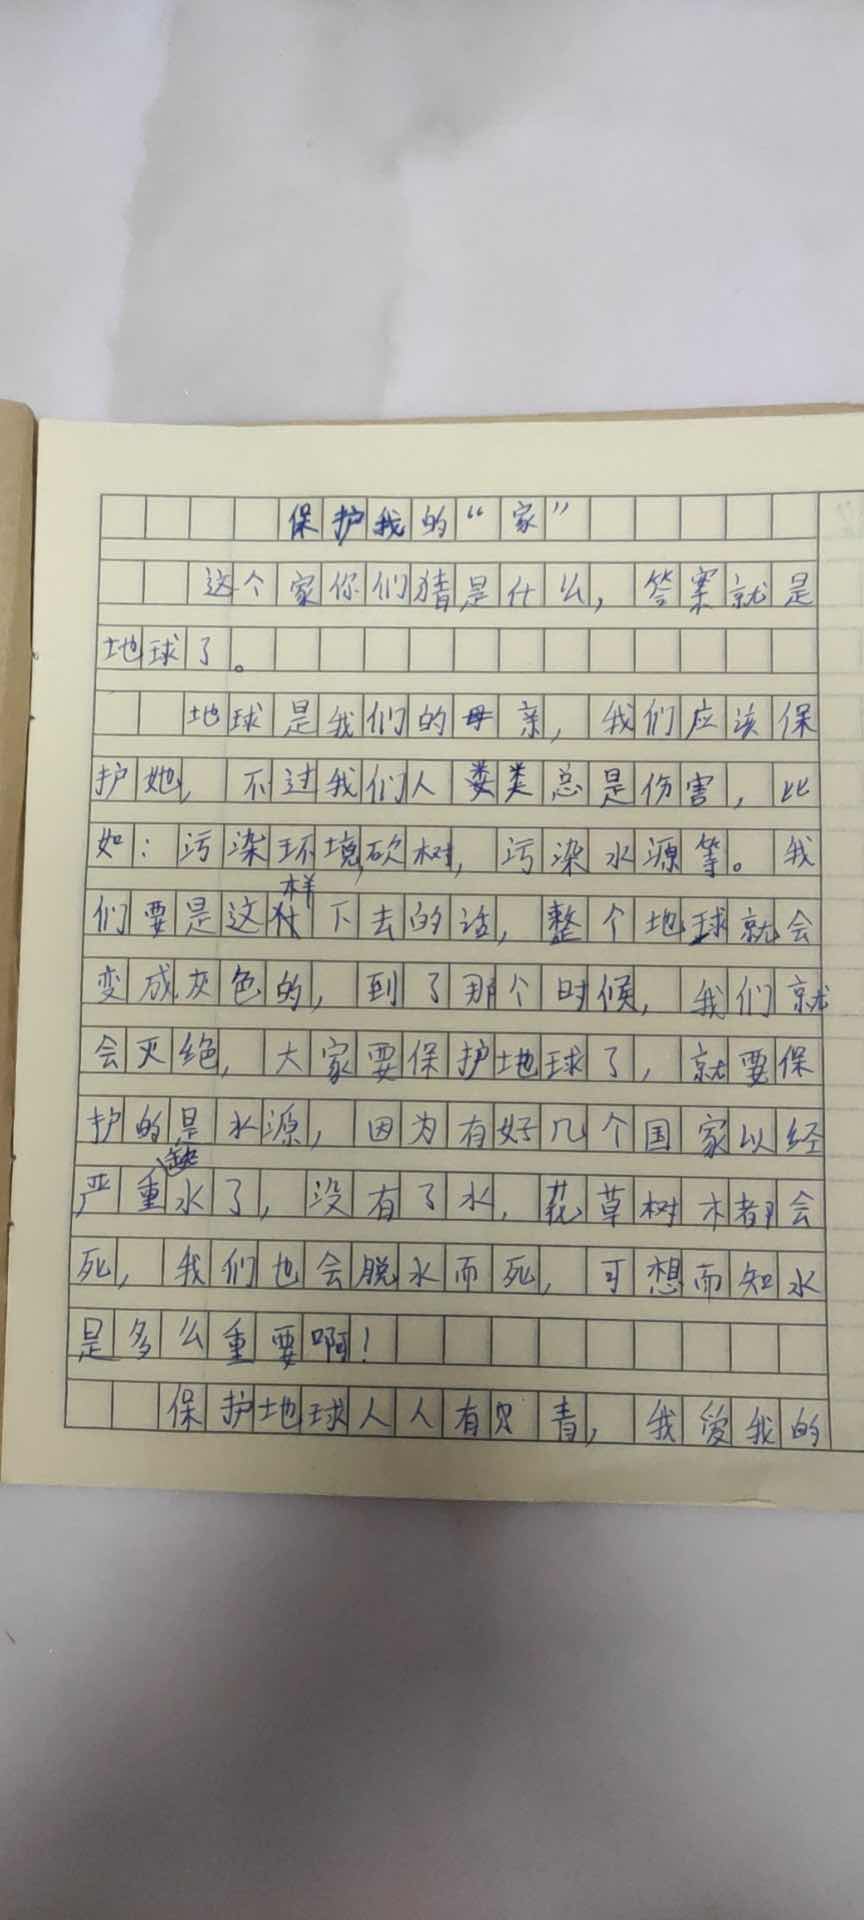 保护我的“家”
这个家你们猜是什么，答案就是
地球了。
地球是我们的母亲，我们应该保
护她，不过我们人类总是伤害，比
如：污染环境,砍树，污染水源等。我
们要是这样下去的话，整个地球就会
变成灰色的，到了那个时候，我们就
会灭绝，大家要保护地球了，就要保
护的是水源，因为有好几个国家以经
严重缺水了，没有了水，花草树木都会
死，我们也会脱水而死，可想而知水
是多么重要啊！
保护地球人人有，我爱我的